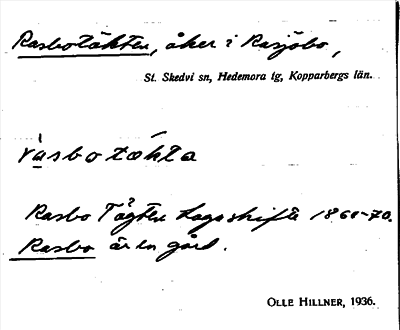 Rasbotäkten, åker i Rasjöbo,
St. Skedvi sn, Hedemora tg, Kopparbergs län.
ràsbotækta
Rasbo Tägten Lagaskifte 1860-70.
Rasbo är en gård.
OLLE HILLNER, 1936.